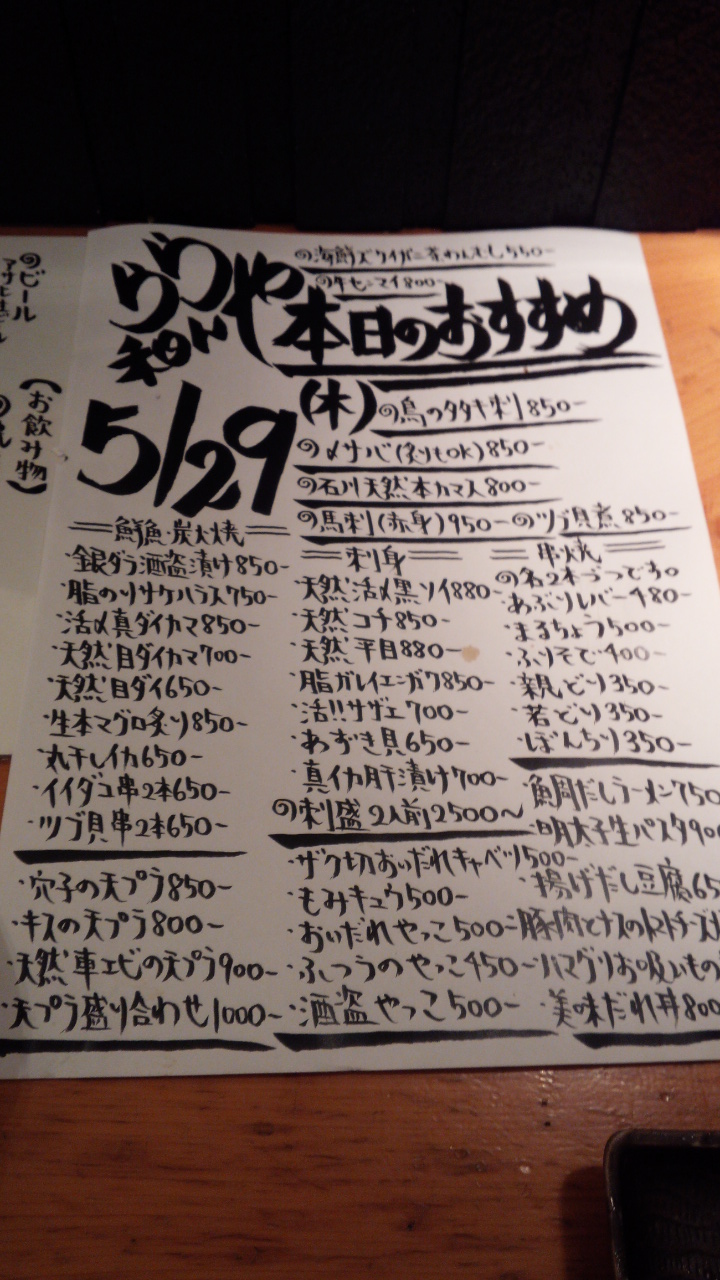 のビール
(お飲み物)
の海鮮ズワイガニ茶わんむし550-
の牛センマイ800-
本日のおすすめ
5/29
(木)
の鳥のタタキ刺850-
の〆サバ(炙りもOK)850-
の石川天然本カマス800-
の馬刺(赤身)950-
のツブ貝煮850-
鮮魚炭火焼
・銀ダラ酒盗漬け850-
・脂のりサケハラス750-
・活〆真ダイカマ850-
・天然目ダイカマ700-
・天然目ダイ650-
・生本マグロ炙り850-
・丸干しイカ650-
・イイダコ串2本650-
・ツブ貝串2本650-
刺身
・天然活〆黒ソイ880-
・天然コチ850-
・天然平目880-
・脂ガレイエンガワ850-
・活!!サザエ700-
・あずき貝650-
・真イカ肝漬け700-
の刺盛2人前2500〜
串焼
の各2本づつです。
・あぶりレバー480-
・まるちょう500-
・ふりそで400-
・親どり350-
・若どり350-
・ぼんちり350-
・穴子の天プラ850-
・キスの天プラ800-
・天然車エビの天プラ900-
・天プラ盛り合わせ1000-
・ザク切おいだれキャベツ500-
・もみキュウ500-
・おいだれやっこ500-
・ふつうのやっこ450-
・酒盗やっこ500-
・魚周だしラーメン750
・明太子生パスタ900
・揚げだし豆腐65
・豚肉とナスのトマトチーズ
・ハマグリお吸いもの
・美味だれ丼800